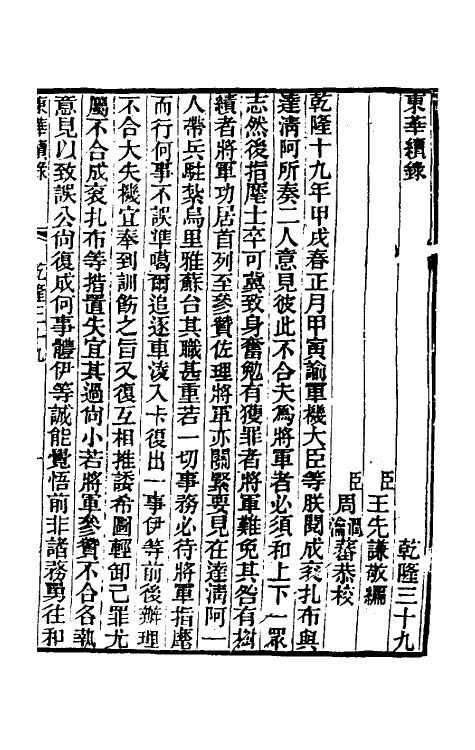 東華續錄
乾隆三十九
臣王先謙敬編
臣周潤蕃瀹蕃恭校
乾隆十九年甲戌春正月甲寅諭軍機大臣等朕閱成袞扎布與
達淸阿所奏二人意見彼此不合夫為將軍者必須和上下一眾
志然後指麾士卒可冀致身奮勉有獲罪者將軍難免其咎有樹
績者將軍功居首列至參贊佐理將軍亦關緊要見在達淸阿一
人帶兵駐紮烏里雅蘇台其職甚重若一切事務必待將軍指麾
而行何事不誤準噶爾追逐車淩入卡復出一事伊等前後辦理
不合大失機宜奉到訓飭之旨又復互相推諉希圖輕卸己罪尤
屬不合成袞扎布等措置失宜其過尙小若將軍參贊不合各執
意見以致誤公尙復成何事體伊等誠能覺悟前非諸務勇往和
東華續錄
乾隆三十九
一